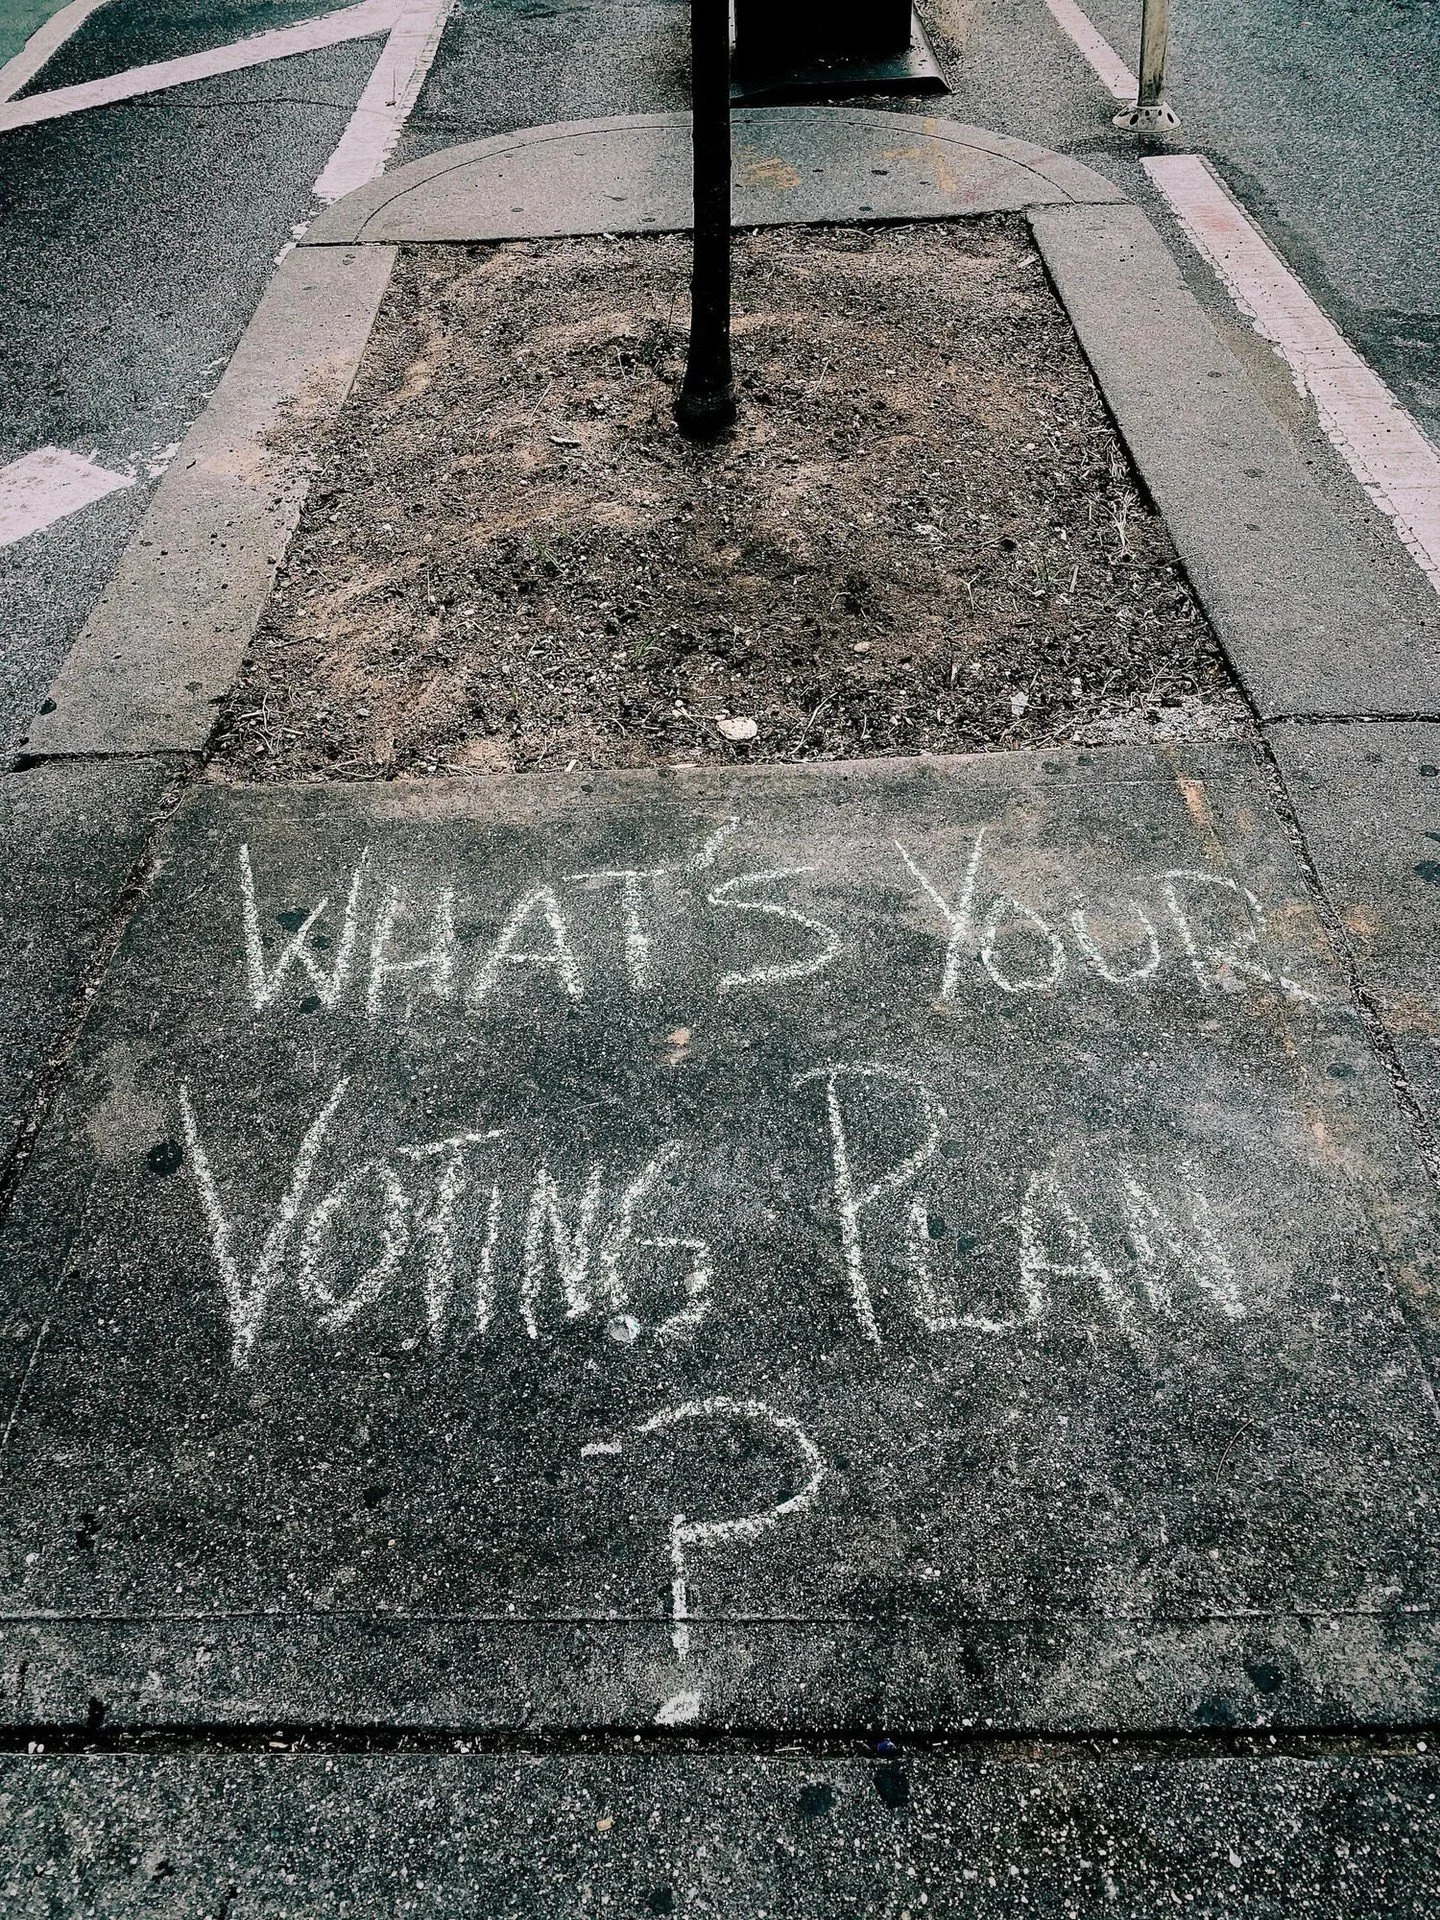 WHAT'S YOUR
VOTING PLAN
?